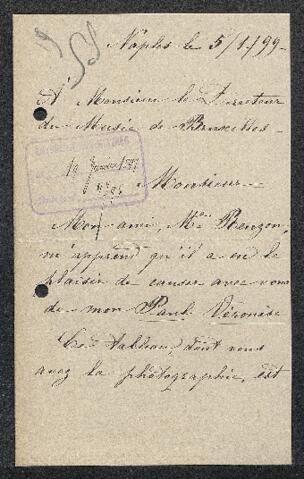 Naples le 5/1/99-
A Monsieur le Directeur
du Musée de Bruxelles-
19 Janvier 1899
Monsieur-
Mon ami, Mr Renzon,
m'apprend qu'il a eu le
plaisir de causer avec vous
de mon Paul Véronèse
Ce tableau, dont vous
avez la photographie, est